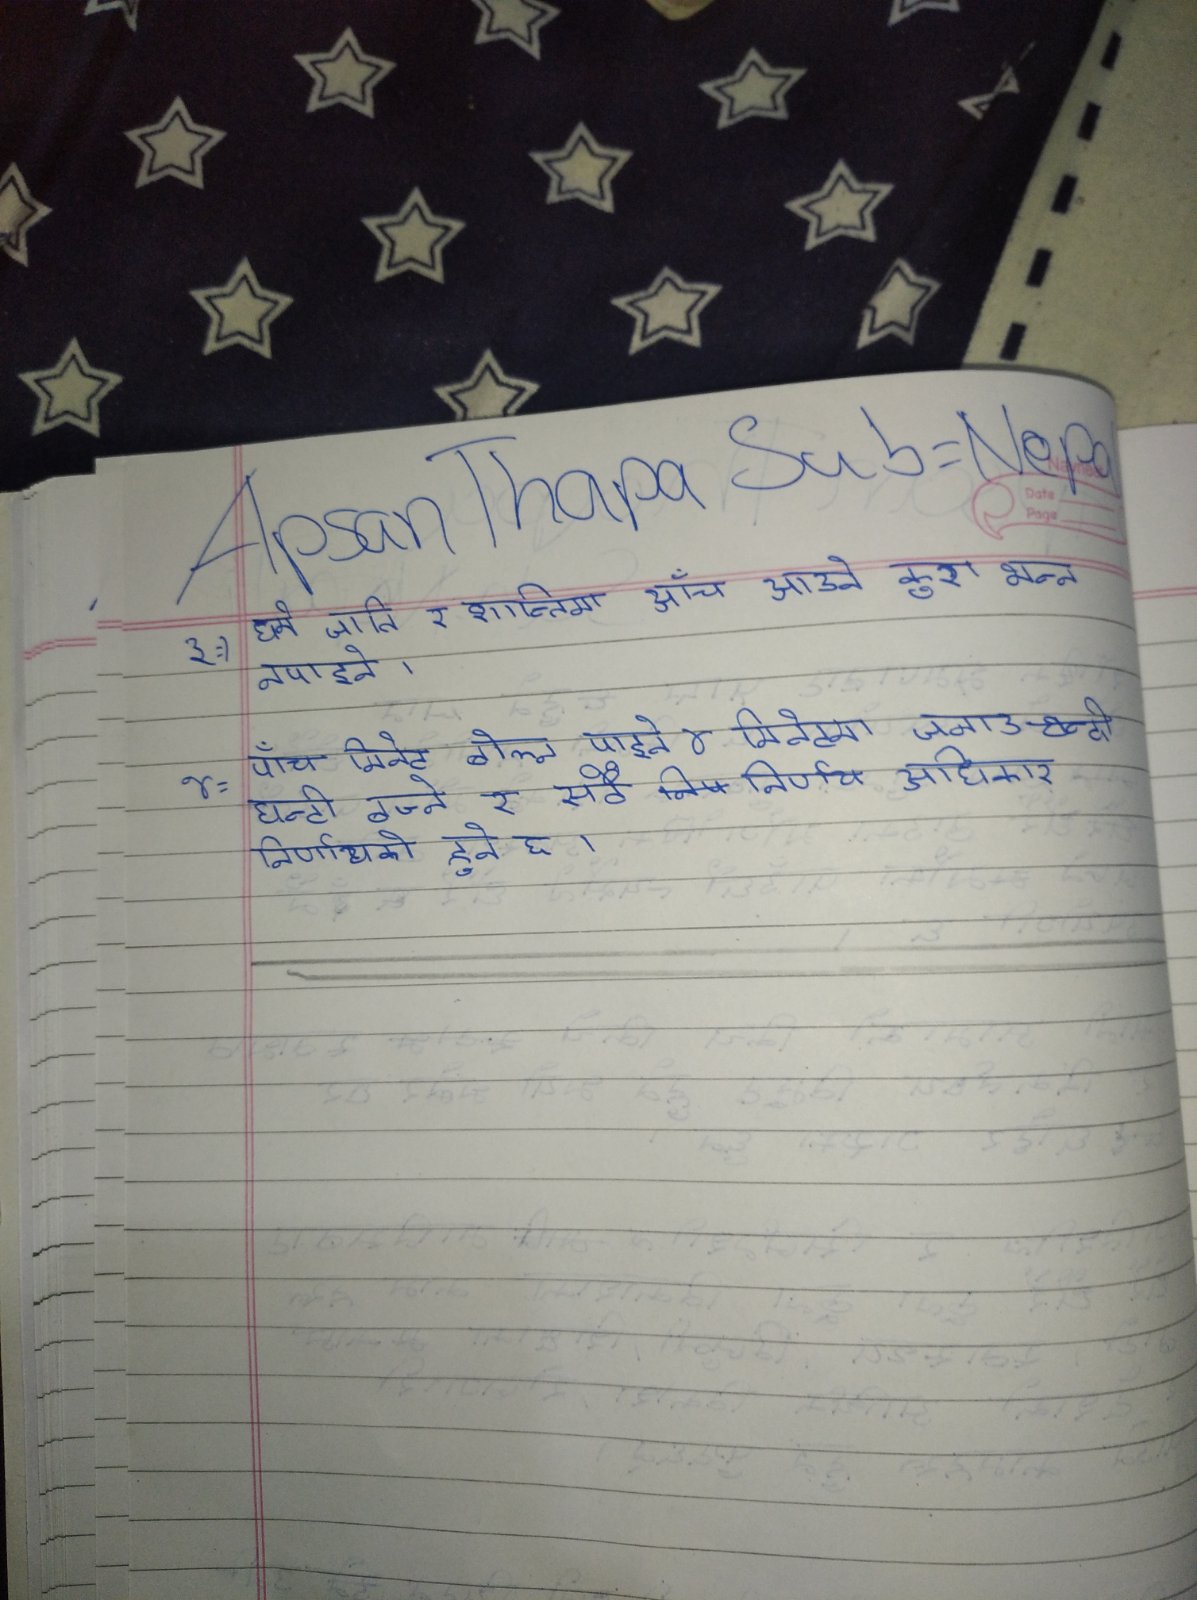 Apsan Thapa Sub=Nepa
Date
Page
३=) धर्म जाति र शान्तिमा आँच आउने कुरा भन्न
नपाइने ।
४= पाँच मिनेट बोल्न पाइने ४ मिनेटमा जनाउ
घन्टी बज्ने र सबै निर्णय अधिकार
निर्णायको हुने छ ।